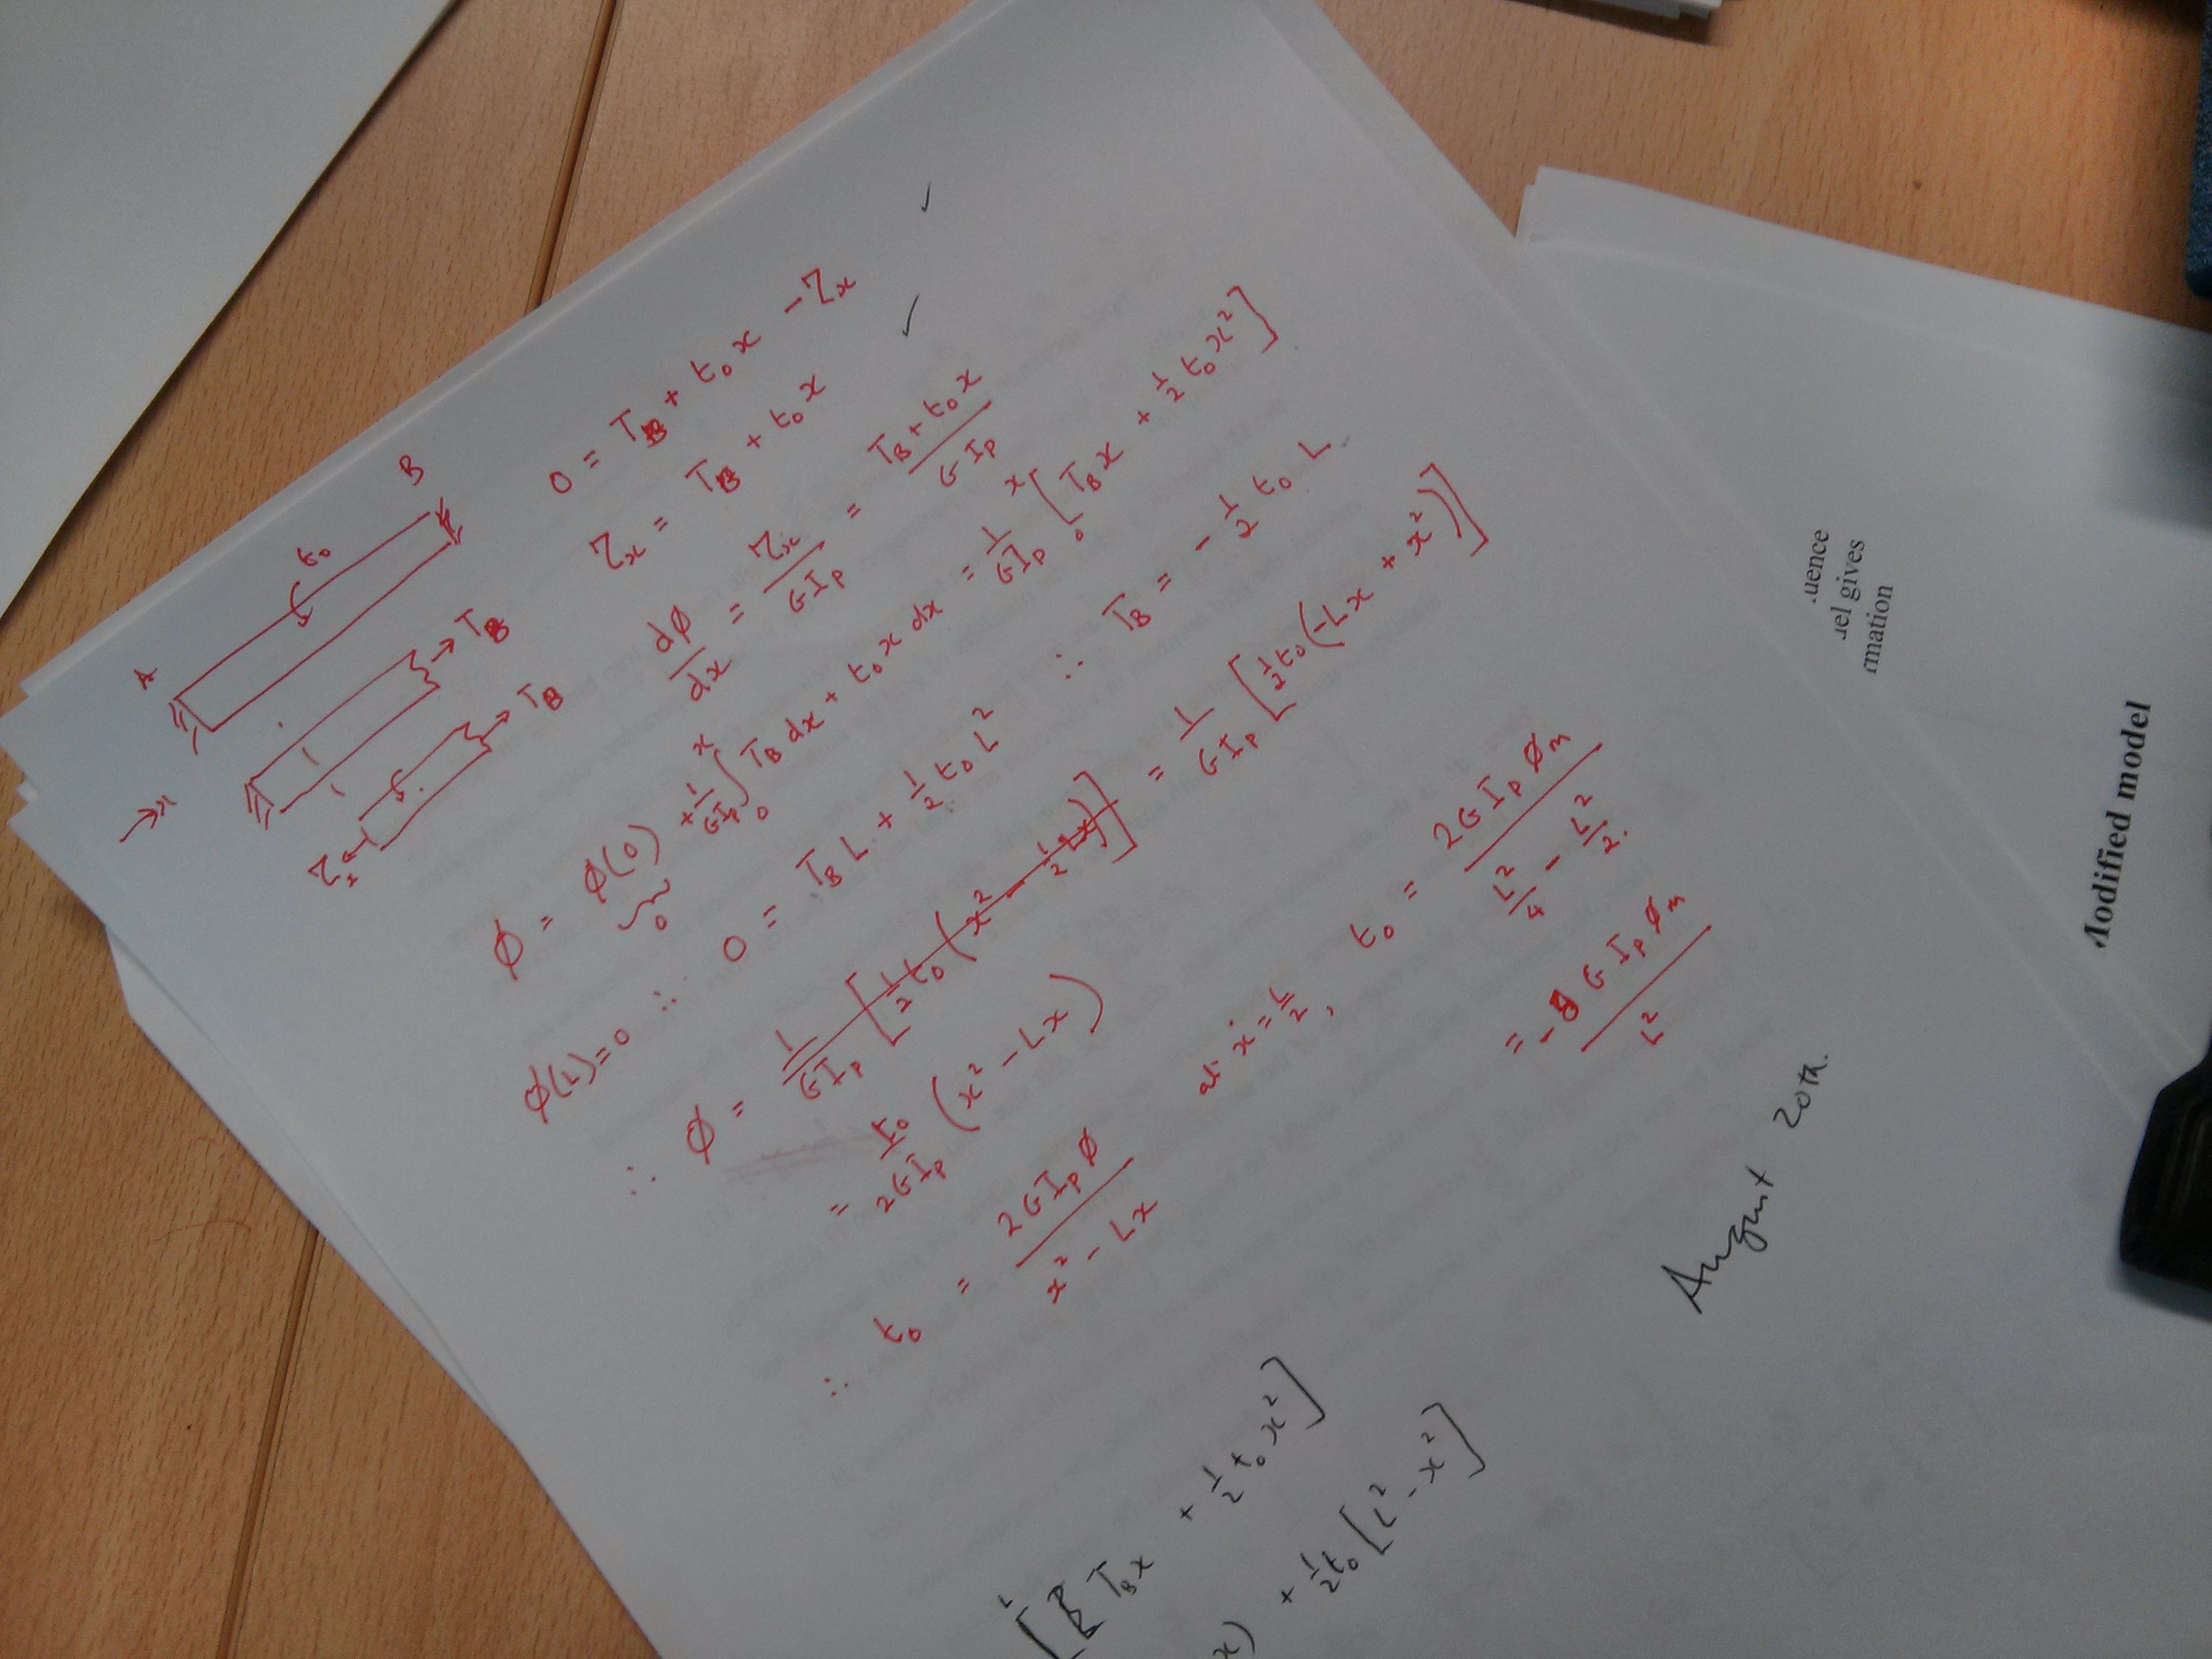 A
B
t₀
T_B
T_B
τ_x
→x
0 = T_B + t₀x - τ_x ✓
τ_x = T_B + t₀x ✓
dφ/dx = τ_x/GI_P = (T_B + t₀x)/GI_P
φ = φ(0) + 1/GI_P ∫₀ˣ T_B dx + t₀x dx = 1/GI_P ₀ˣ[T_B x + ½ t₀x²]
0
φ(L)=0 ∴ 0 = T_B L + ½ t₀L² ∴ T_B = -½ t₀L
∴ φ = 1/GI_P [½t₀(x² - ½Lx)] = 1/GI_P [½t₀(-Lx + x²)]
= t₀/2GI_P (x² - Lx)
∴ t₀ = 2GI_Pφ/(x² - Lx) at x = L/2, t₀ = 2GI_Pφ_m/(L²/4 - L²/2)
= -8GI_Pφ_m/L²
August 20th.
[T_B x + ½t₀x²]
x) + ½t₀[L² - x²]
uence
el gives
rmation
Modified model